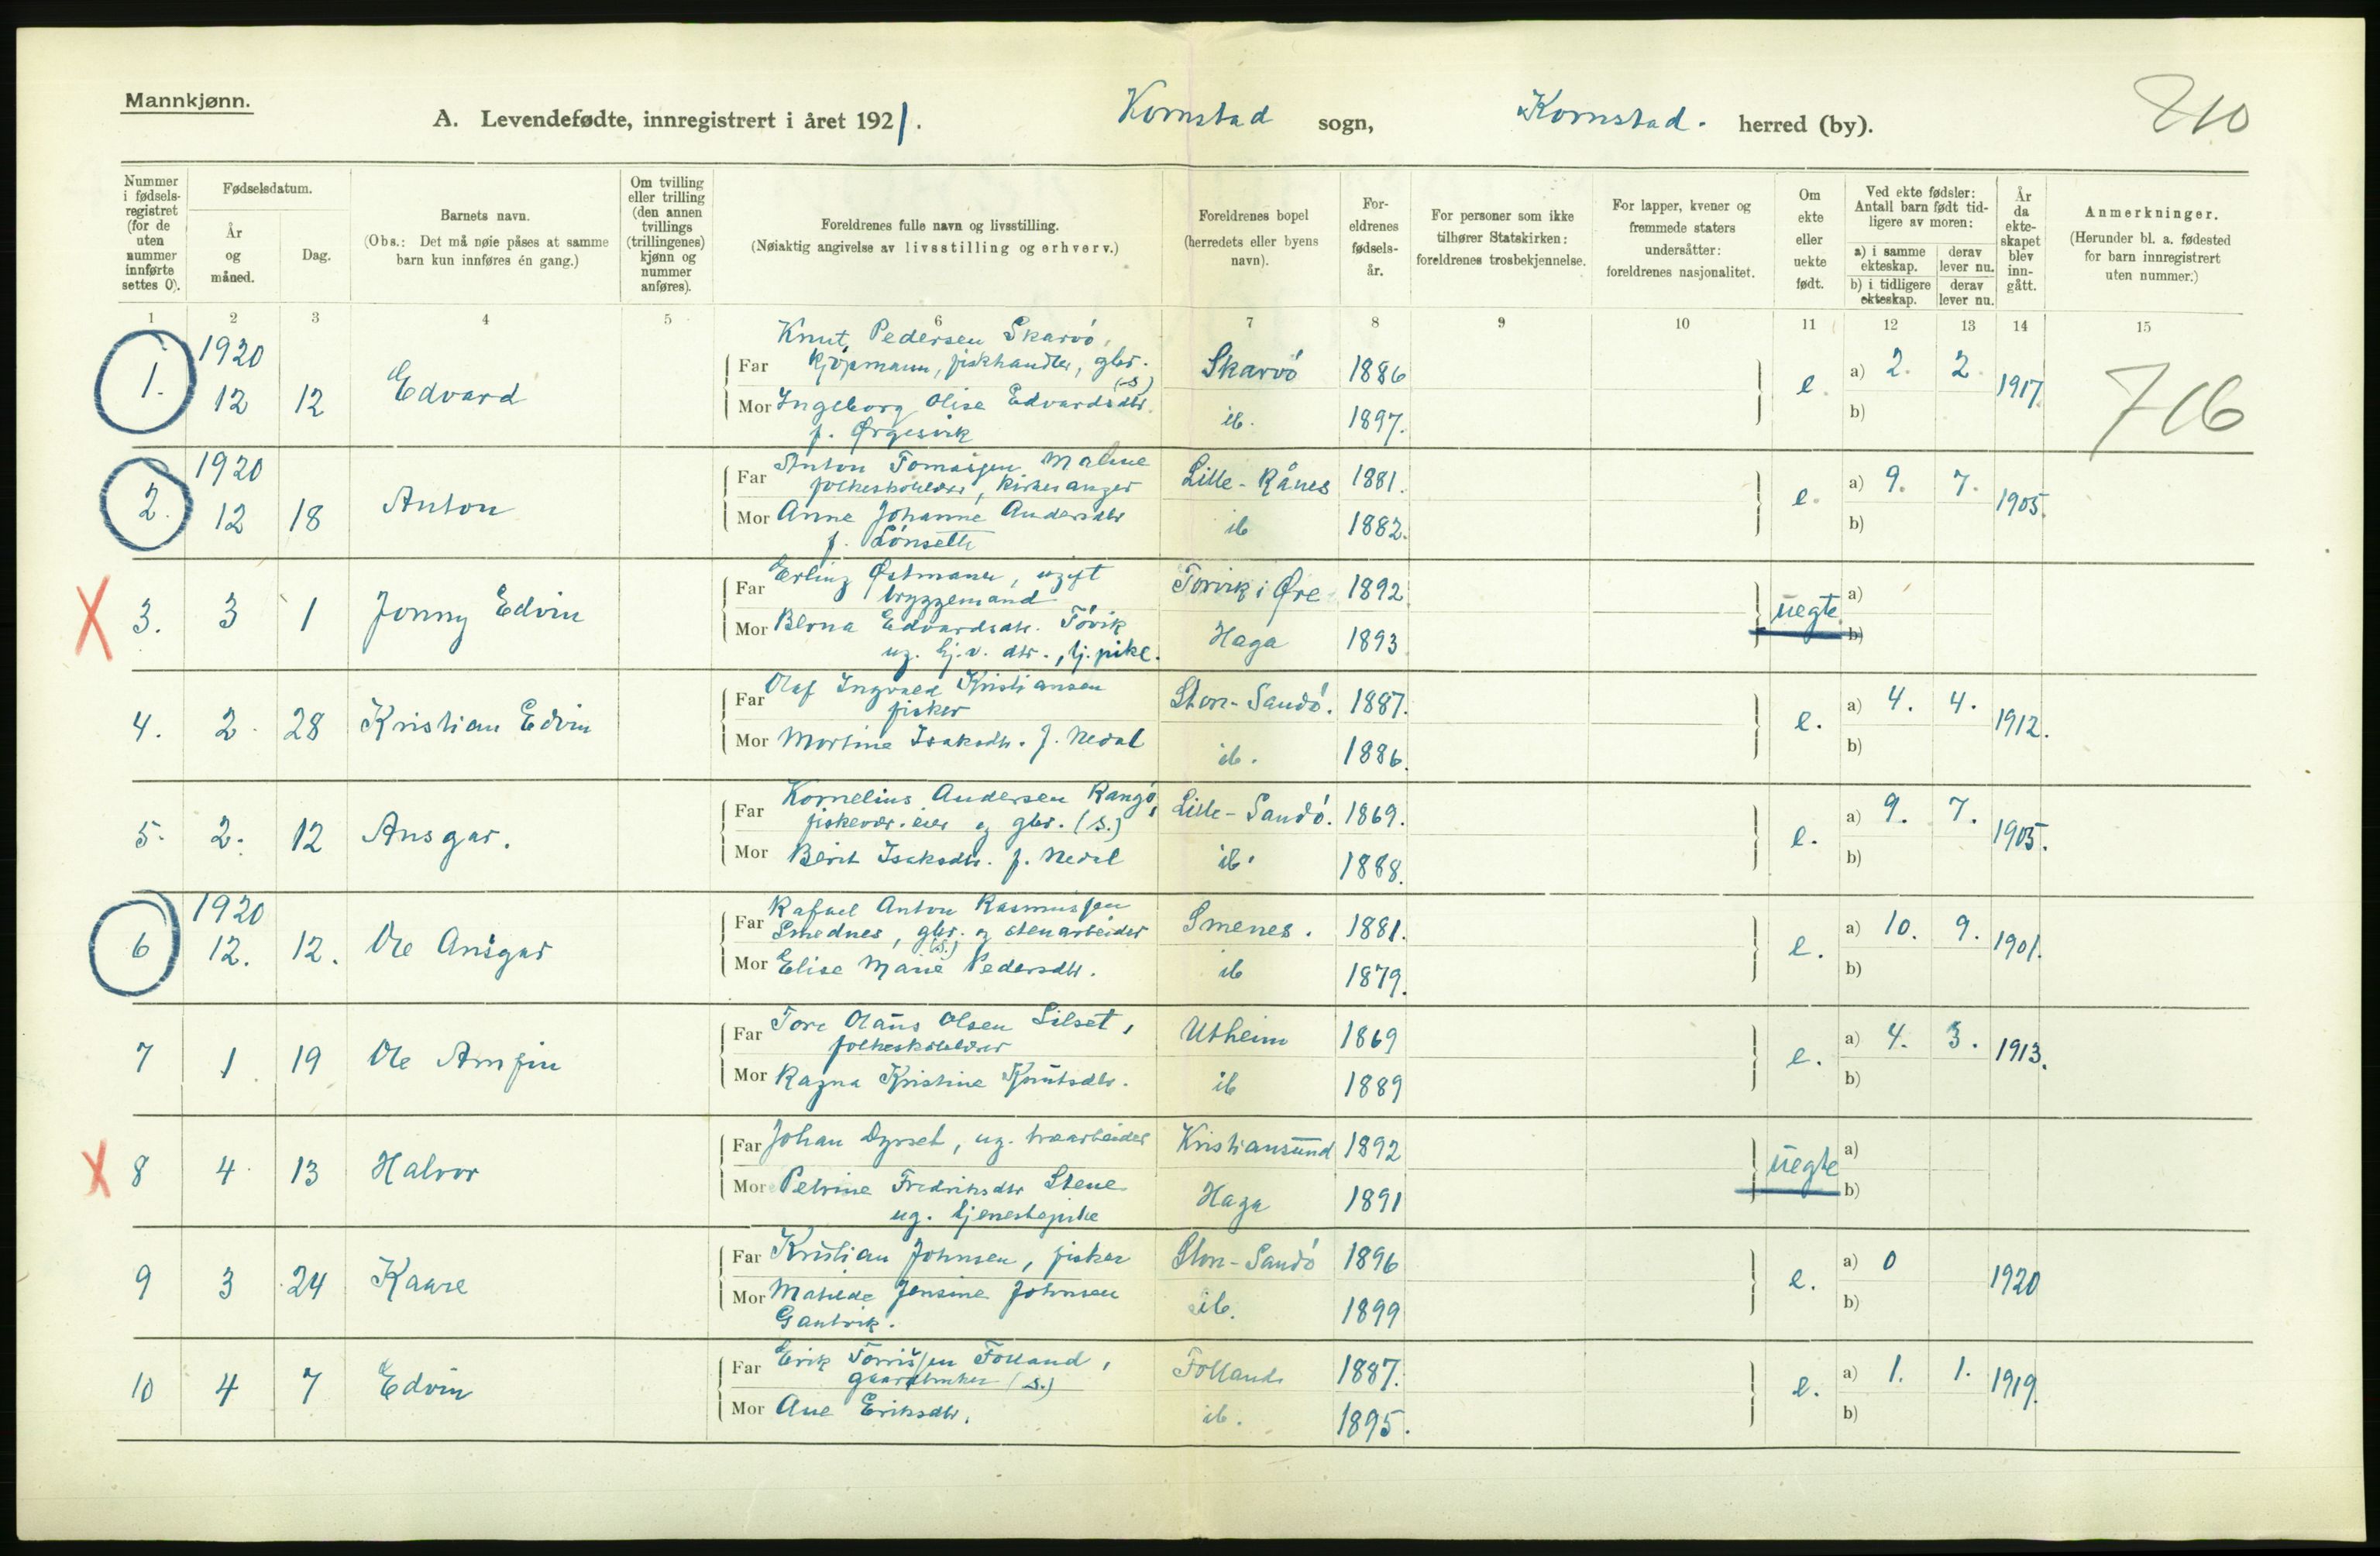 Mannkjønn.
A. Levendefødte, innregistrert i året 1921.
Kornstad sogn, Kornstad. herred (by).
710
Nummer i fødselsregistret (for de uten nummer innførte settes 0).
Fødselsdatum.
År og måned.
Dag.
Barnets navn.
(Obs.: Det må nøie påses at samme barn kun innføres én gang.)
Om tvilling eller trilling (den annen tvillings (trillingenes) kjønn og nummer anføres).
Foreldrenes fulle navn og livsstilling.
(Nøiaktig angivelse av livsstilling og erhverv.)
Foreldrenes bopel (herredets eller byens navn).
Foreldrenes fødselsår.
For personer som ikke tilhører Statskirken: foreldrenes trosbekjennelse.
For lapper, kvener og fremmede staters undersåtter: foreldrenes nasjonalitet.
Om ekte eller uekte født.
Ved ekte fødsler: Antall barn født tidligere av moren:
a) i samme ekteskap.
derav lever nu.
b) i tidligere ekteskap.
derav lever nu.
År da ekteskapet blev inngått.
Anmerkninger.
(Herunder bl. a. fødested for barn innregistrert uten nummer.)
1 2 3 4 5 6 7 8 9 10 11 12 13 14 15
1. 1920 12 12 Edvard
Far Knut Pedersen Skarvö, kjöpmann, fiskhandler, gbr. (S) Skarvö 1886
Mor Ingeborg Olise Edvardsdtr. f. Ørgesvik ib. 1897.
e. a) 2. 2. b) 1917.
716
2. 1920 12 18 Anton
Far Anton Tomassen Malme folkeskolelærer, kirkesanger Lille-Rånes 1881.
Mor Anne Johanne Andersdtr f. Lönseth ib 1882.
e. a) 9. 7. b) 1905.
3. 3 1 Jonny Edvin
Far Erling Østmann, ugift bryggemand Torvik i Øre 1892
Mor Berna Edvardsdtr. Tövik ug. tj.v. dtr., tj.pike. Haga 1893
uegte a) b)
4. 2. 28 Kristian Edvin
Far Olaf Ingvald Kristiansen fisker Stor-Sandö. 1887.
Mor Martine Isaksdtr. f. Nedal ib. 1886.
e. a) 4. 4. b) 1912.
5. 2. 12 Ansgar.
Far Kornelius Andersen Rangö, fiskevær.eier og gbr. (S.) Lille-Sandö. 1869.
Mor Berit Isaksdtr. f. Nedal ib. 1888.
e. a) 9. 7. b) 1905.
6 1920 12. 12. Ole Ansgar
Far Rafael Anton Rasmussen Smednes, gbr. (S.) og stenarbeider Smenes. 1881.
Mor Elise Marie Pedersdtr. ib 1879.
e. a) 10. 9. b) 1901.
7 1 19 Ole Arnfin
Far Tore Olaus Olsen Lilset, folkeskolelærer Utheim 1869
Mor Ragna Kristine Knutsdtr. ib 1889
e. a) 4. 3. b) 1913.
8 4 13 Halvor
Far Johan Dyrset, ug. træarbeider Kristiansund 1892
Mor Petrine Fredriksdtr Stene ug. tjenestepike Haga 1891
uegte a) b)
9 3 24 Kaare
Far Kristian Johnsen, fisker Stor-Sandö 1896
Mor Matilde Jensine Johnsen Gautvik. ib. 1899
e. a) 0 b) 1920
10 4 7 Edvin
Far Erik Torrissen Folland, gaardbruker (S.) Folland 1887.
Mor Ane Eriksdtr. ib. 1895.
e. a) 1. 1. b) 1919.